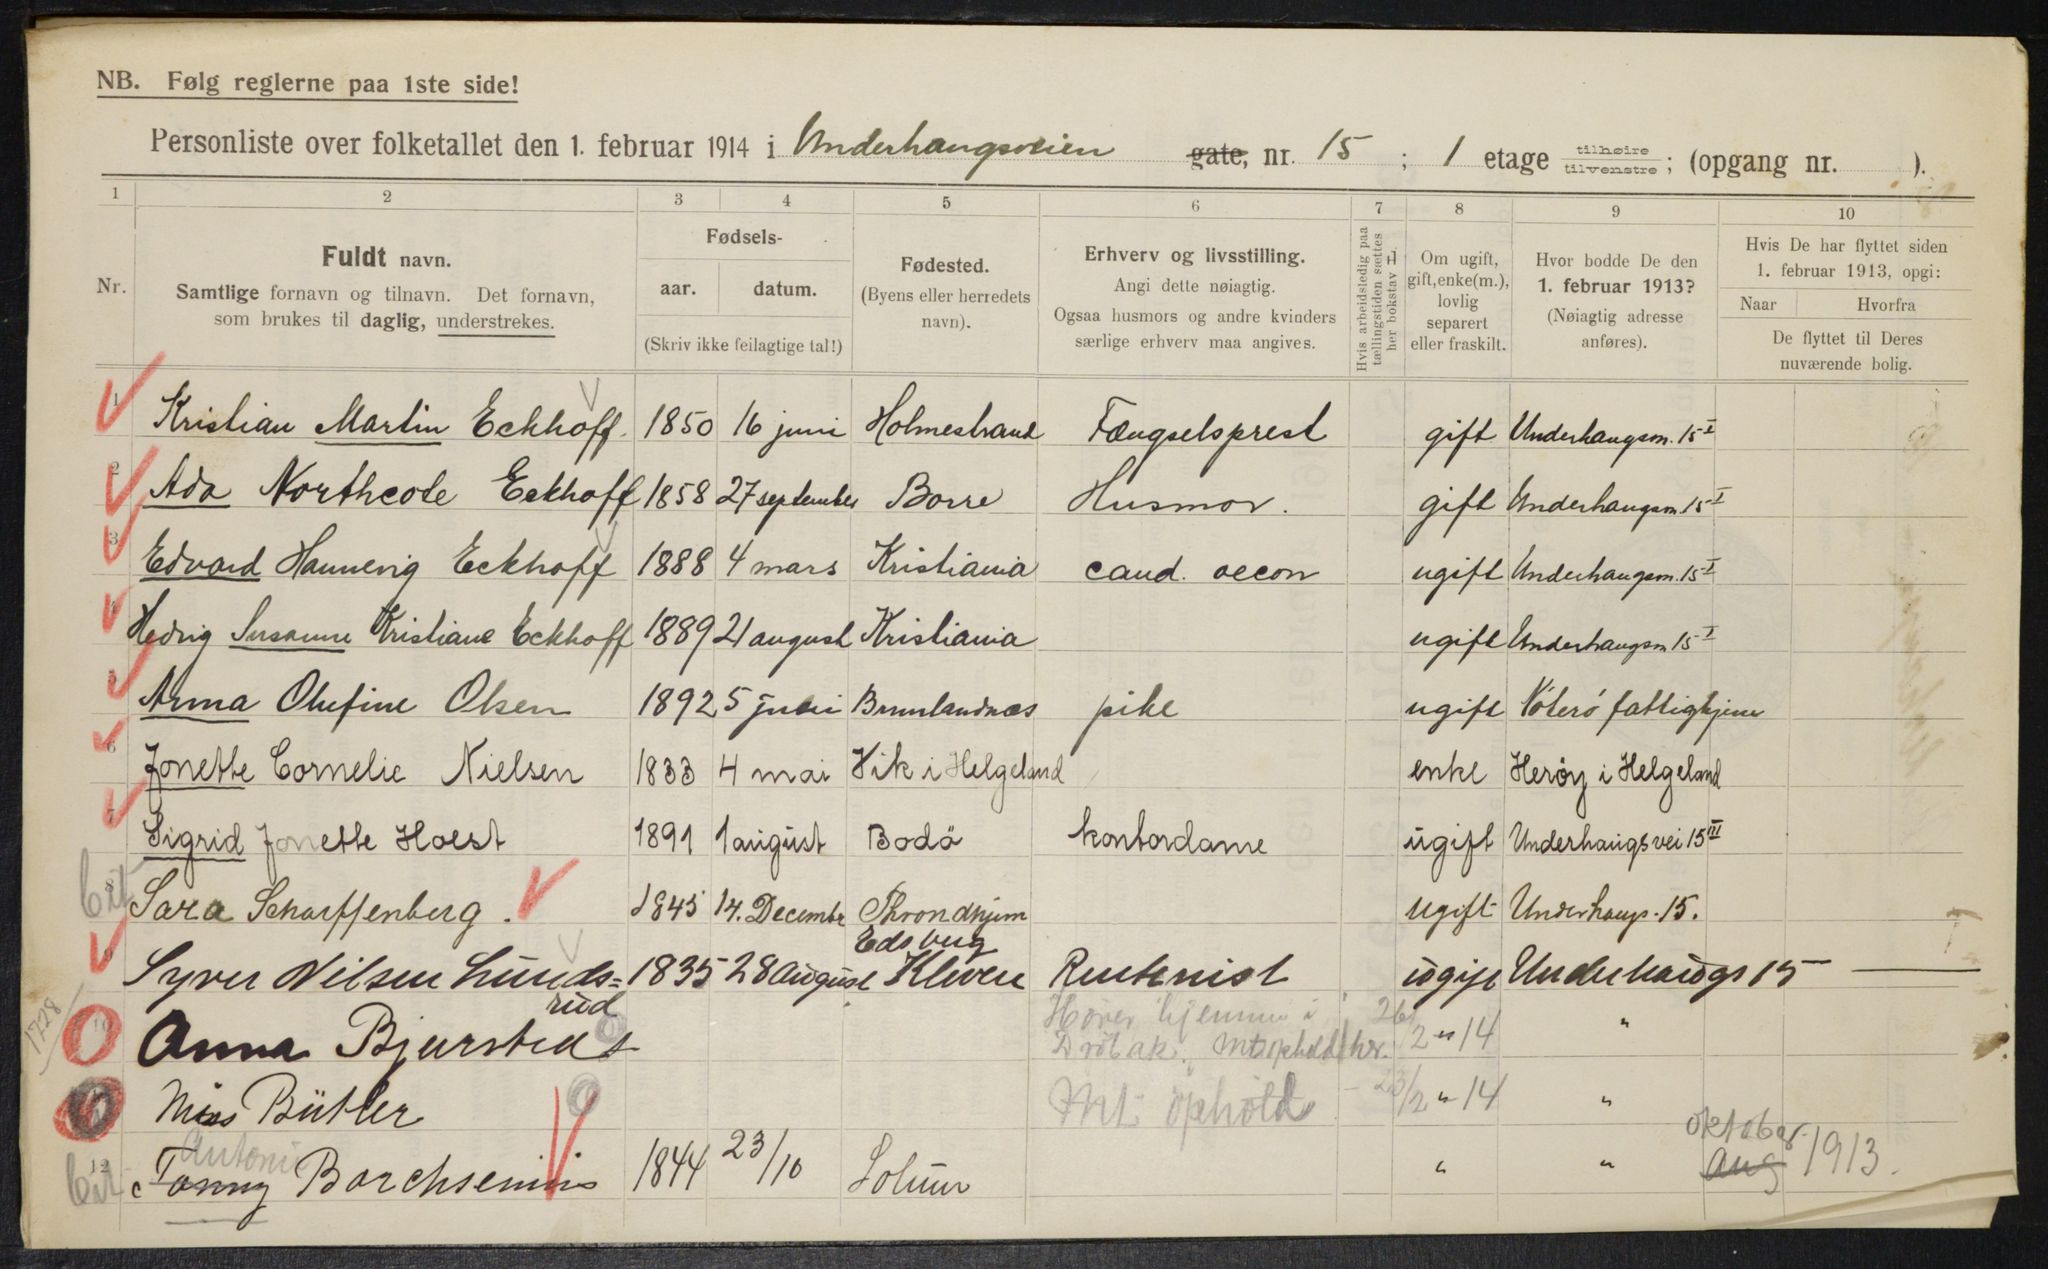 NB. Følg reglerne paa 1ste side!
Personliste over folketallet den 1. februar 1914 i Underhaugsveien gate, nr. 15 ; 1 etage tilhøire tilvenstre ; (opgang nr. ).
1 2 3 4 5 6 7 8 9 10
Nr.
Fuldt navn.
Samtlige fornavn og tilnavn. Det fornavn,
som brukes til daglig, understrekes.
Fødsels-
aar. datum.
(Skriv ikke feilagtige tal!)
Fødested.
(Byens eller herredets
navn).
Erhverv og livsstilling.
Angi dette nøiagtig.
Ogsaa husmors og andre kvinders
særlige erhverv maa angives.
Hvis arbeidsledig paa
tællingstiden sættes
her bokstav L
Om ugift,
gift, enke(m.),
lovlig
separert
eller fraskilt.
Hvor bodde De den
1. februar 1913?
(Nøiagtig adresse
anføres).
Hvis De har flyttet siden
1. februar 1913, opgi:
Naar Hvorfra
De flyttet til Deres
nuværende bolig.
1 Kristian Martin Eckhoff. 1850 16 juni Holmestrand Fængselsprest gift Underhaugsm. 15 I
2 Ada Northcote Eckhoff 1858 27 september Borre Husmor. gift Underhaugsm 15 I
3 Edvard Hannevig Eckhoff 1888 4 mars Kristiania cand. oecon ugift Underhaugsm. 15 I
4 Hedvig Susanne Kristiane Eckhoff 1889 21 august Kristiania ugift Underhaugsm 15 I
5 Anna Olufine Olsen 1892 5 juni Brunlandnæs pike ugift Nøterø fattighjem
6 Jonette Cornelie Nielsen 1833 4 mai Vik i Helgeland enke Herøy i Helgeland
7 Sigrid Jonette Holst 1891 1 august Bodö kontordame ugift Underhaugsvei 15 III
8 Sara Scharffenberg. 1845 14. Decembr Throndhjem ugift Underhaugs. 15.
9 Syver Nilsen Lunds= 1835 28 August Edsberg Kleven Rentenist ugift Underhaugs 15
rud
1728
10 Anna Bjursteds Hører hjemme i 26/2 " 14 "
Drøbak. Mt ophold her.
Miss Bütler Mt. ophold - 23/2 " 14 "
12 Fanny Antoni Borchsenius 1844 23/10 Solum " " oktober aug 1913.